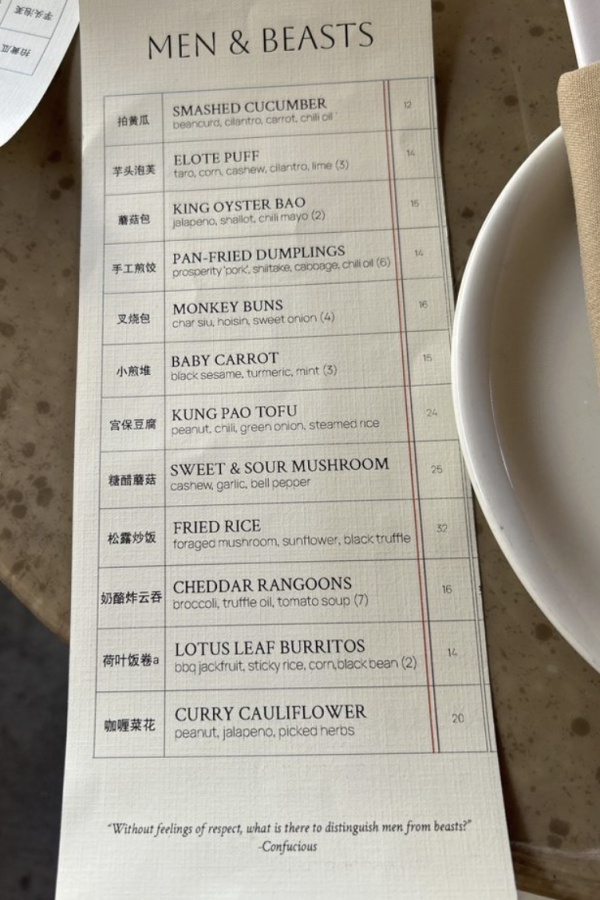 MEN & BEASTS
拍黄瓜 SMASHED CUCUMBER 12
beancurd, cilantro, carrot, chili oil
芋头泡芙 ELOTE PUFF 14
taro, corn, cashew, cilantro, lime (3)
蘑菇包 KING OYSTER BAO 15
jalapeno, shallot, chili mayo (2)
手工煎饺 PAN-FRIED DUMPLINGS 14
prosperity 'pork', shiitake, cabbage, chili oil (6)
叉烧包 MONKEY BUNS 16
char siu, hoisin, sweet onion (4)
小煎堆 BABY CARROT 15
black sesame, turmeric, mint (3)
宫保豆腐 KUNG PAO TOFU 24
peanut, chili, green onion, steamed rice
糖醋蘑菇 SWEET & SOUR MUSHROOM 25
cashew, garlic, bell pepper
松露炒饭 FRIED RICE 32
foraged mushroom, sunflower, black truffle
奶酪炸云吞 CHEDDAR RANGOONS 16
broccoli, truffle oil, tomato soup (7)
荷叶饭卷a LOTUS LEAF BURRITOS 14
bbq jackfruit, sticky rice, corn,black bean (2)
咖喱菜花 CURRY CAULIFLOWER 20
peanut, jalapeno, picked herbs
"Without feelings of respect, what is there to distinguish men from beasts?"
-Confucious
芋头泡芙
拍黄瓜